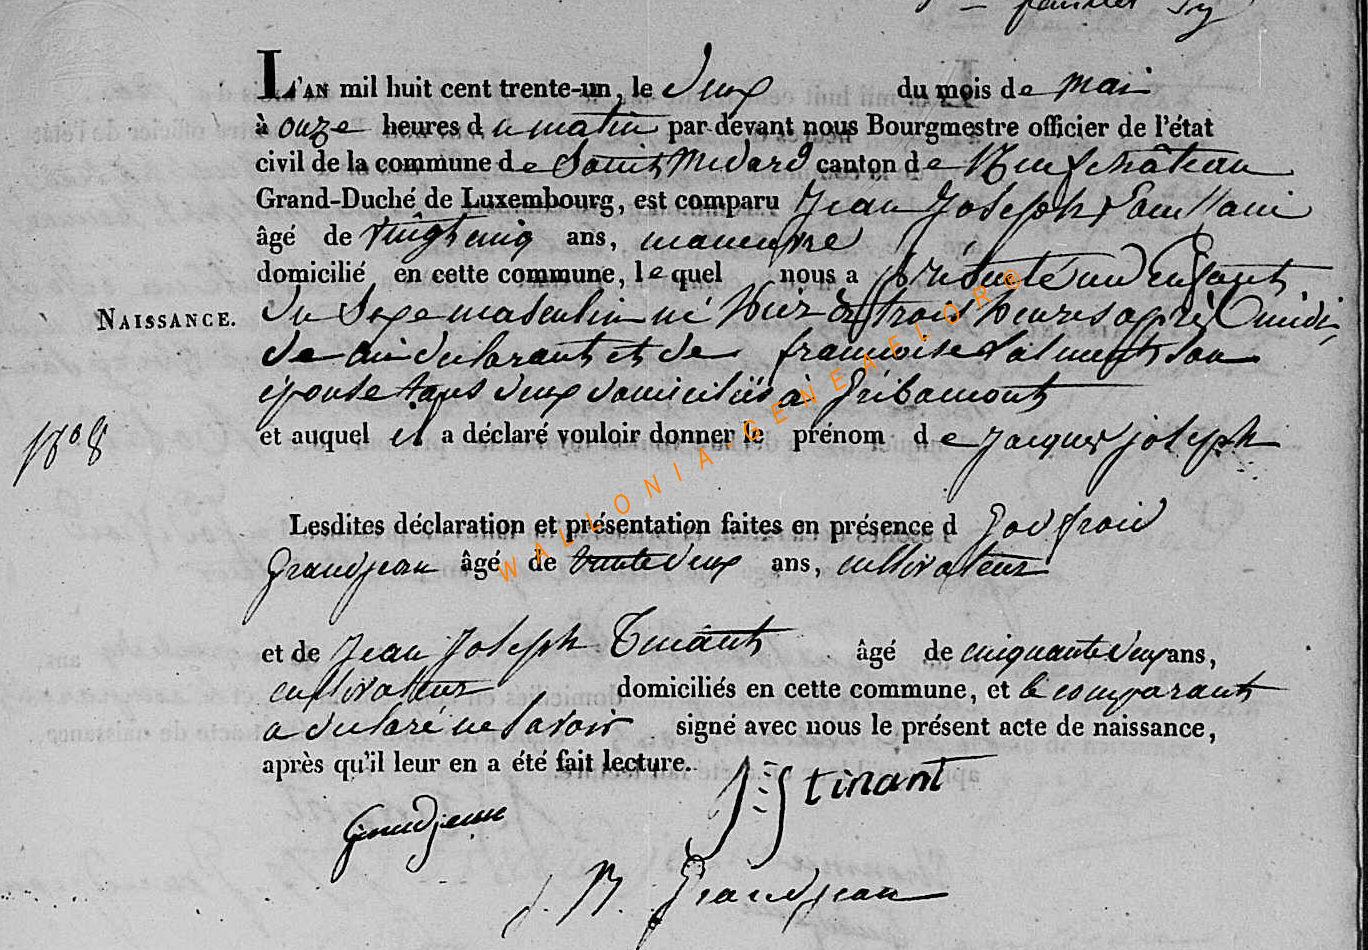 L'AN mil huit cent trente-un, le deux du mois de mai
à onze heures du matin par devant nous Bourgmestre officier de l'état
civil de la commune de Saint Medard canton de Neufchâteau
Grand-Duché de Luxembourg, est comparu Jean Joseph
âgé de vingt cinq ans, maneuvre
domicilié en cette commune, le quel nous a présenté un Enfant
NAISSANCE. du Sexe masculin né hier à trois heures après midi,
de lui declarant et de françoise son
épouse tous deux domiciliés à Gribomont
et auquel il a déclaré vouloir donner le prénom de Jacques joseph
Lesdites déclaration et présentation faites en présence d Godfroid
Grandjean âgé de trente deux ans, cultivateur
et de Jean Joseph Tinant âgé de cinquante deux ans,
cultivateur domiciliés en cette commune, et le comparant
a declaré ne savoir signé avec nous le présent acte de naissance,
après qu'il leur en a été fait lecture.
tinant
Grandjean
J. N. Grandjean
WALLONIA-GENEAFLOR®